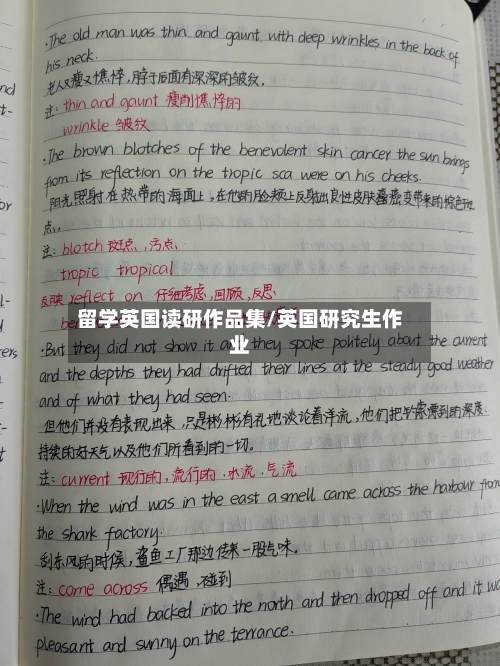 ·The old man was thin and gaunt with deep wrinkles in the back of
his neck.
老人又瘦又憔悴,脖子后面有深深的皱纹.
注: thin and gaunt 瘦削憔悴的
wrinkle 皱纹
·The brown blotches of the benevolent skin cancer the sun brings
from its reflection on the tropic sea were on his cheeks.
阳光照射在热带的海面上,在他的脸颊上反射出良性皮肤癌变带来的棕色斑
点.
注: blotch 斑点,污点
tropic tropical
反映 reflect on 仔细考虑,回顾,反思
留学英国读研作品集/英国研究生作
业
·But they did not show it and they spoke politely about the current
and the depths they had drifted their lines at the steady good weather
and of what they had seen.
但他们并没有表现出来,只是彬彬有礼地谈论着洋流,他们把钓索漂到的深度,
持续的好天气以及他们所看到的一切.
注: current 现行的,流行的.水流.气流
·When the wind was in the east a smell came across the harbour from
the shark factory.
刮东风的时候,鲨鱼工厂那边传来一股气味。
注: come across 偶遇,碰到
·The wind had backed into the north and then dropped off and it wa
pleasant and sunny on the terrance.